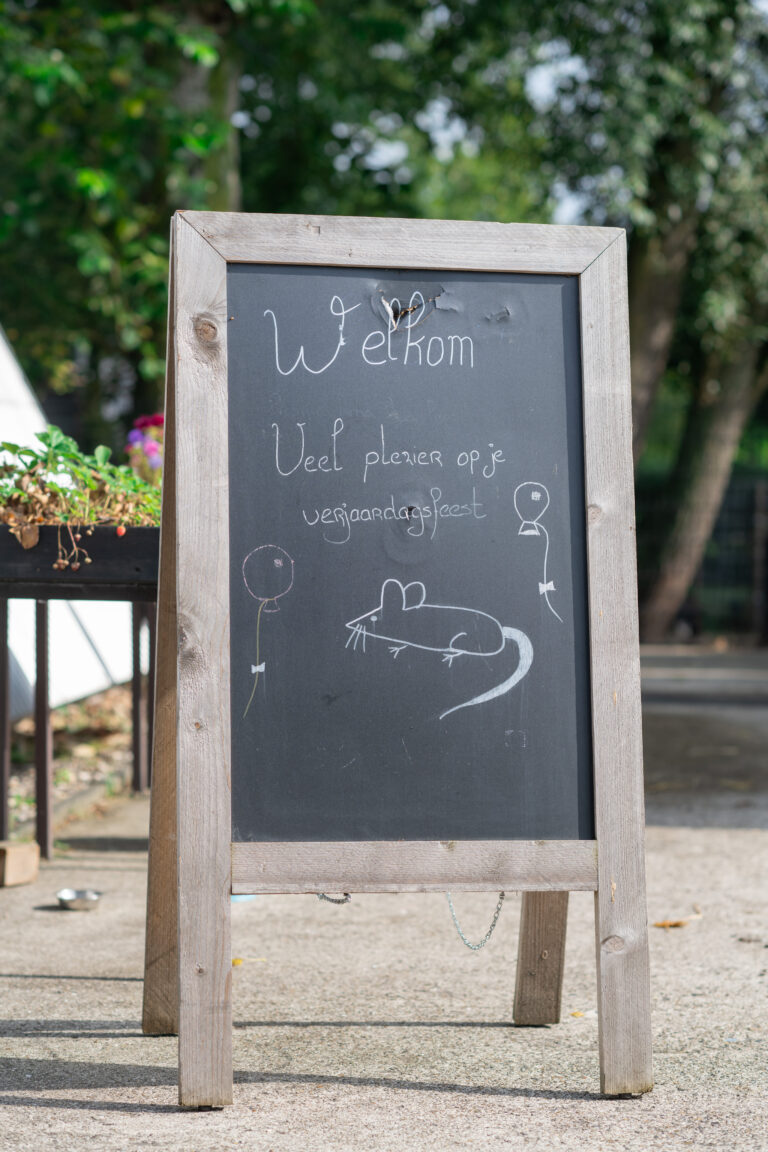 Welkom
Veel plezier op je
verjaardagsfeest